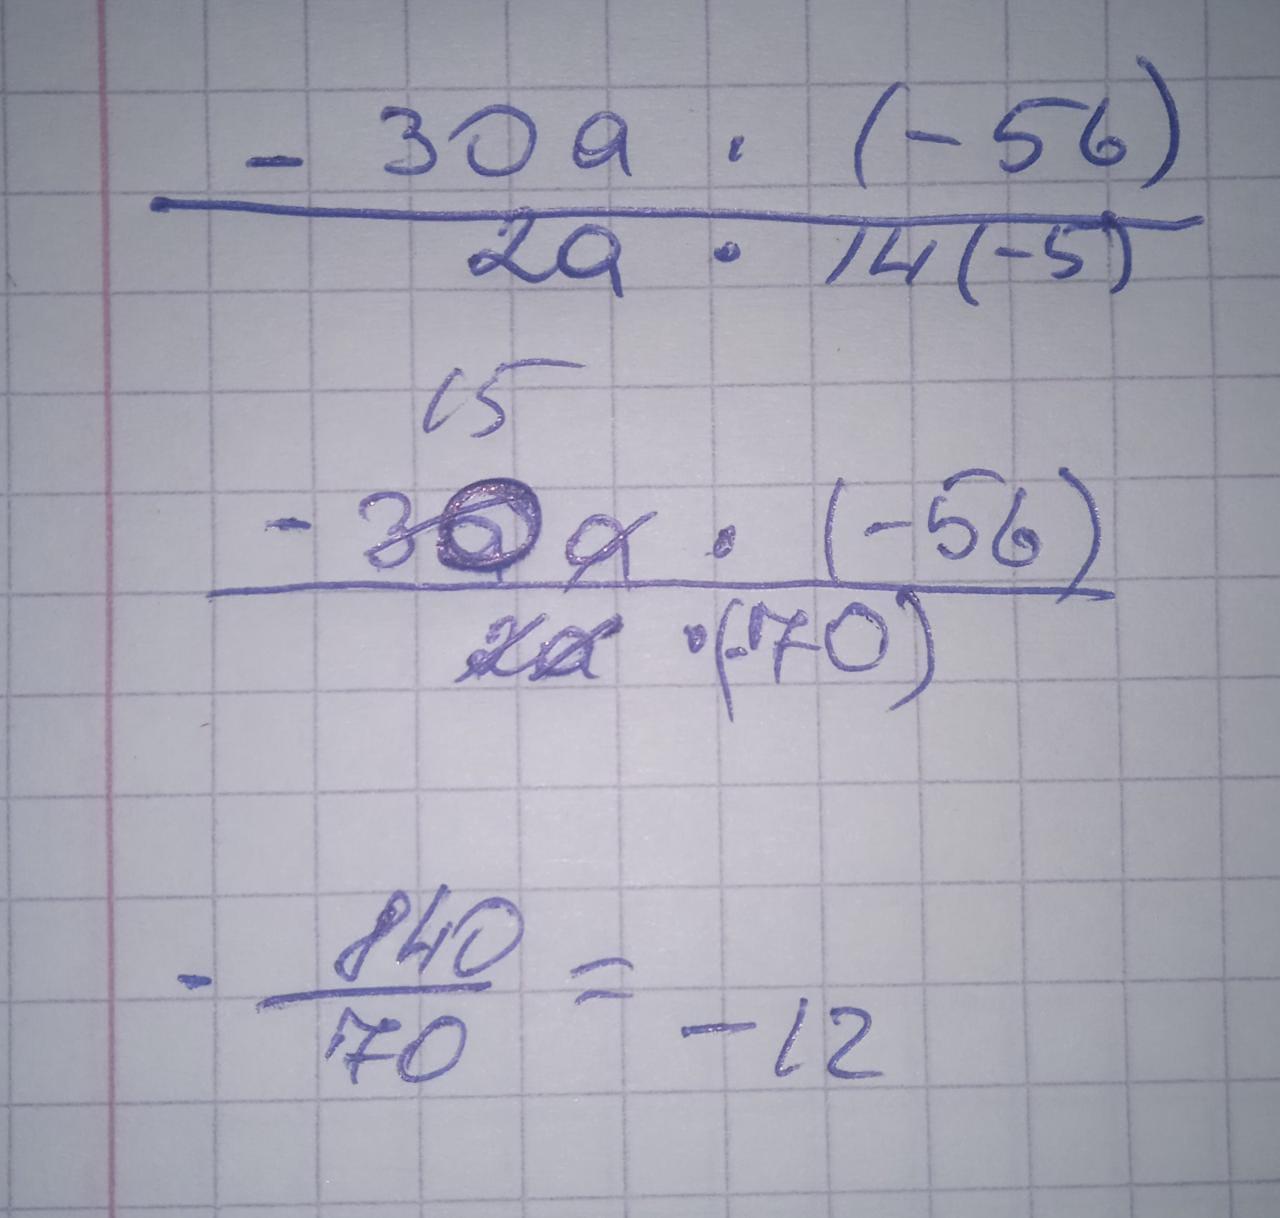 - 30a · (-56)
2a · 14(-5)
15
- 30a · (-56)
2a · (-70)
- 840
70
= -12